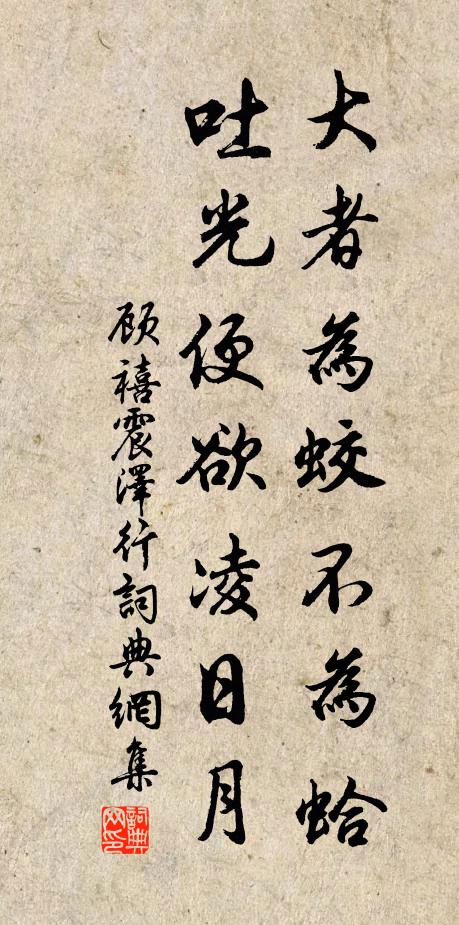 大者為蛟不為蛤
吐光便欲凌日月
顾禧震澤行詞典網集
詞典網印